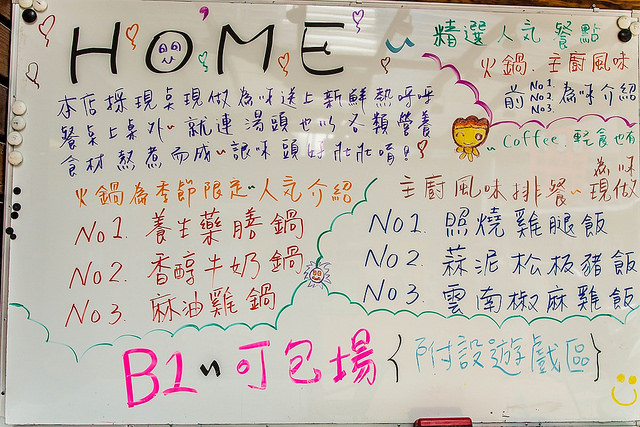 HOME
本店採現桌現做為咪送上新鮮熱呼呼
餐桌上桌外~就連湯頭也以各類營養
食材熬煮而成~讓味頭好壯壯唷!
精選人氣餐點
火鍋、主廚風味
前No1.No2.No3.為咪介紹
Coffee、輕食也有
火鍋為季節限定~人氣介紹
No1 養生藥膳鍋
No2. 香醇牛奶鍋
No3. 麻油雞鍋
為咪
主廚風味排餐~現做
No1. 照燒雞腿飯
No2 蒜泥松板豬飯
No3. 雲南椒麻雞飯
B1~可包場{附設遊戲區}